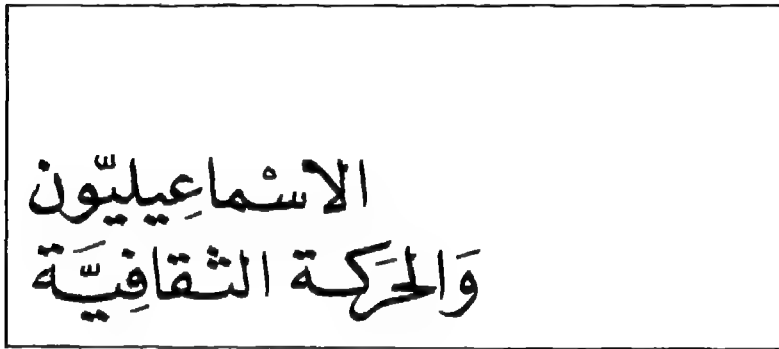 الاسْماعِيليّون
وَالحَرَكة الثقافِيَّة